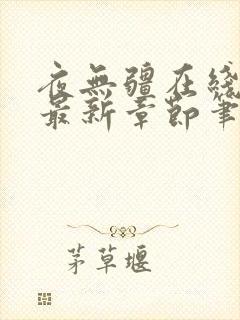 夜無疆在綫
最新章節筆
茅草堰